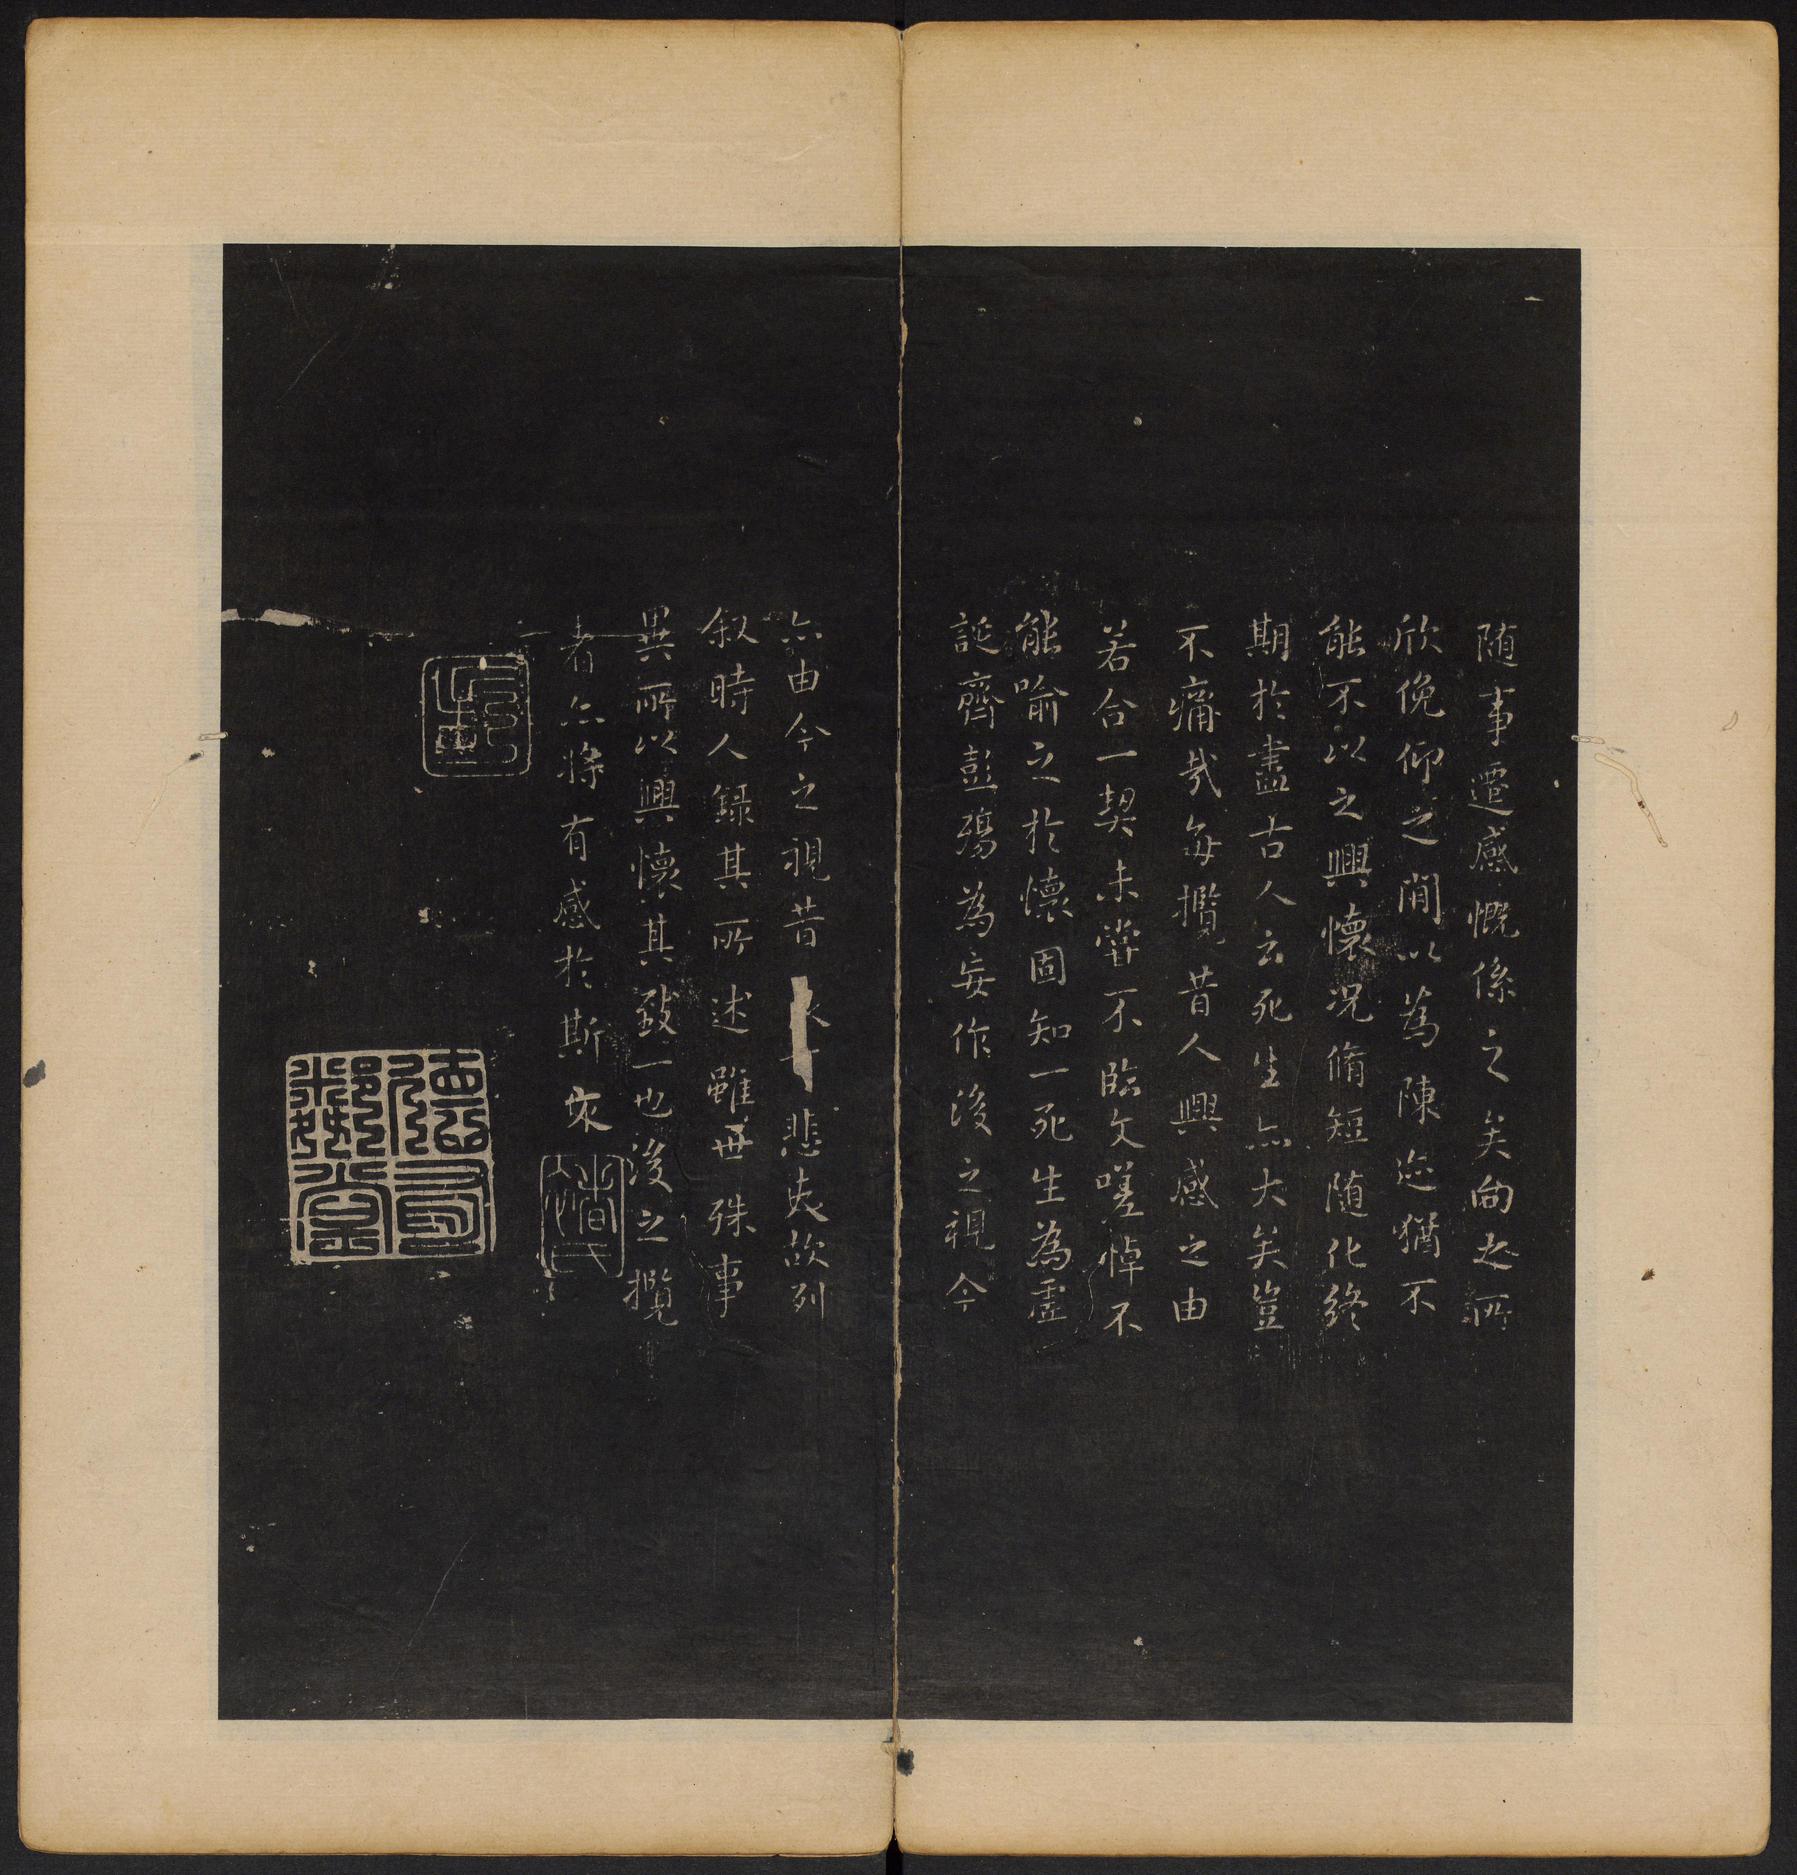 随事遷感慨係之矣向之所
欣俛仰之閒以為陳迹猶不
能不以之興懷況脩短随化終
期於盡古人云死生亦大矣豈
不痛哉每攬昔人興感之由
若合一契未嘗不臨文嗟悼不
能喻之於懷固知一死生為虛
誕齊彭殤為妄作後之視今
亦由今之視昔悲夫故列
叙時人録其所述雖世殊事
異所以興懷其致一也後之攬
者亦將有感於斯文